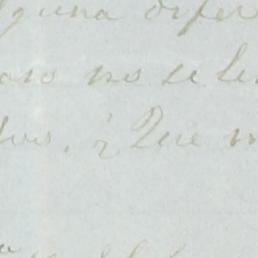 lguna difer
aso no se le
dos. ¿Que m